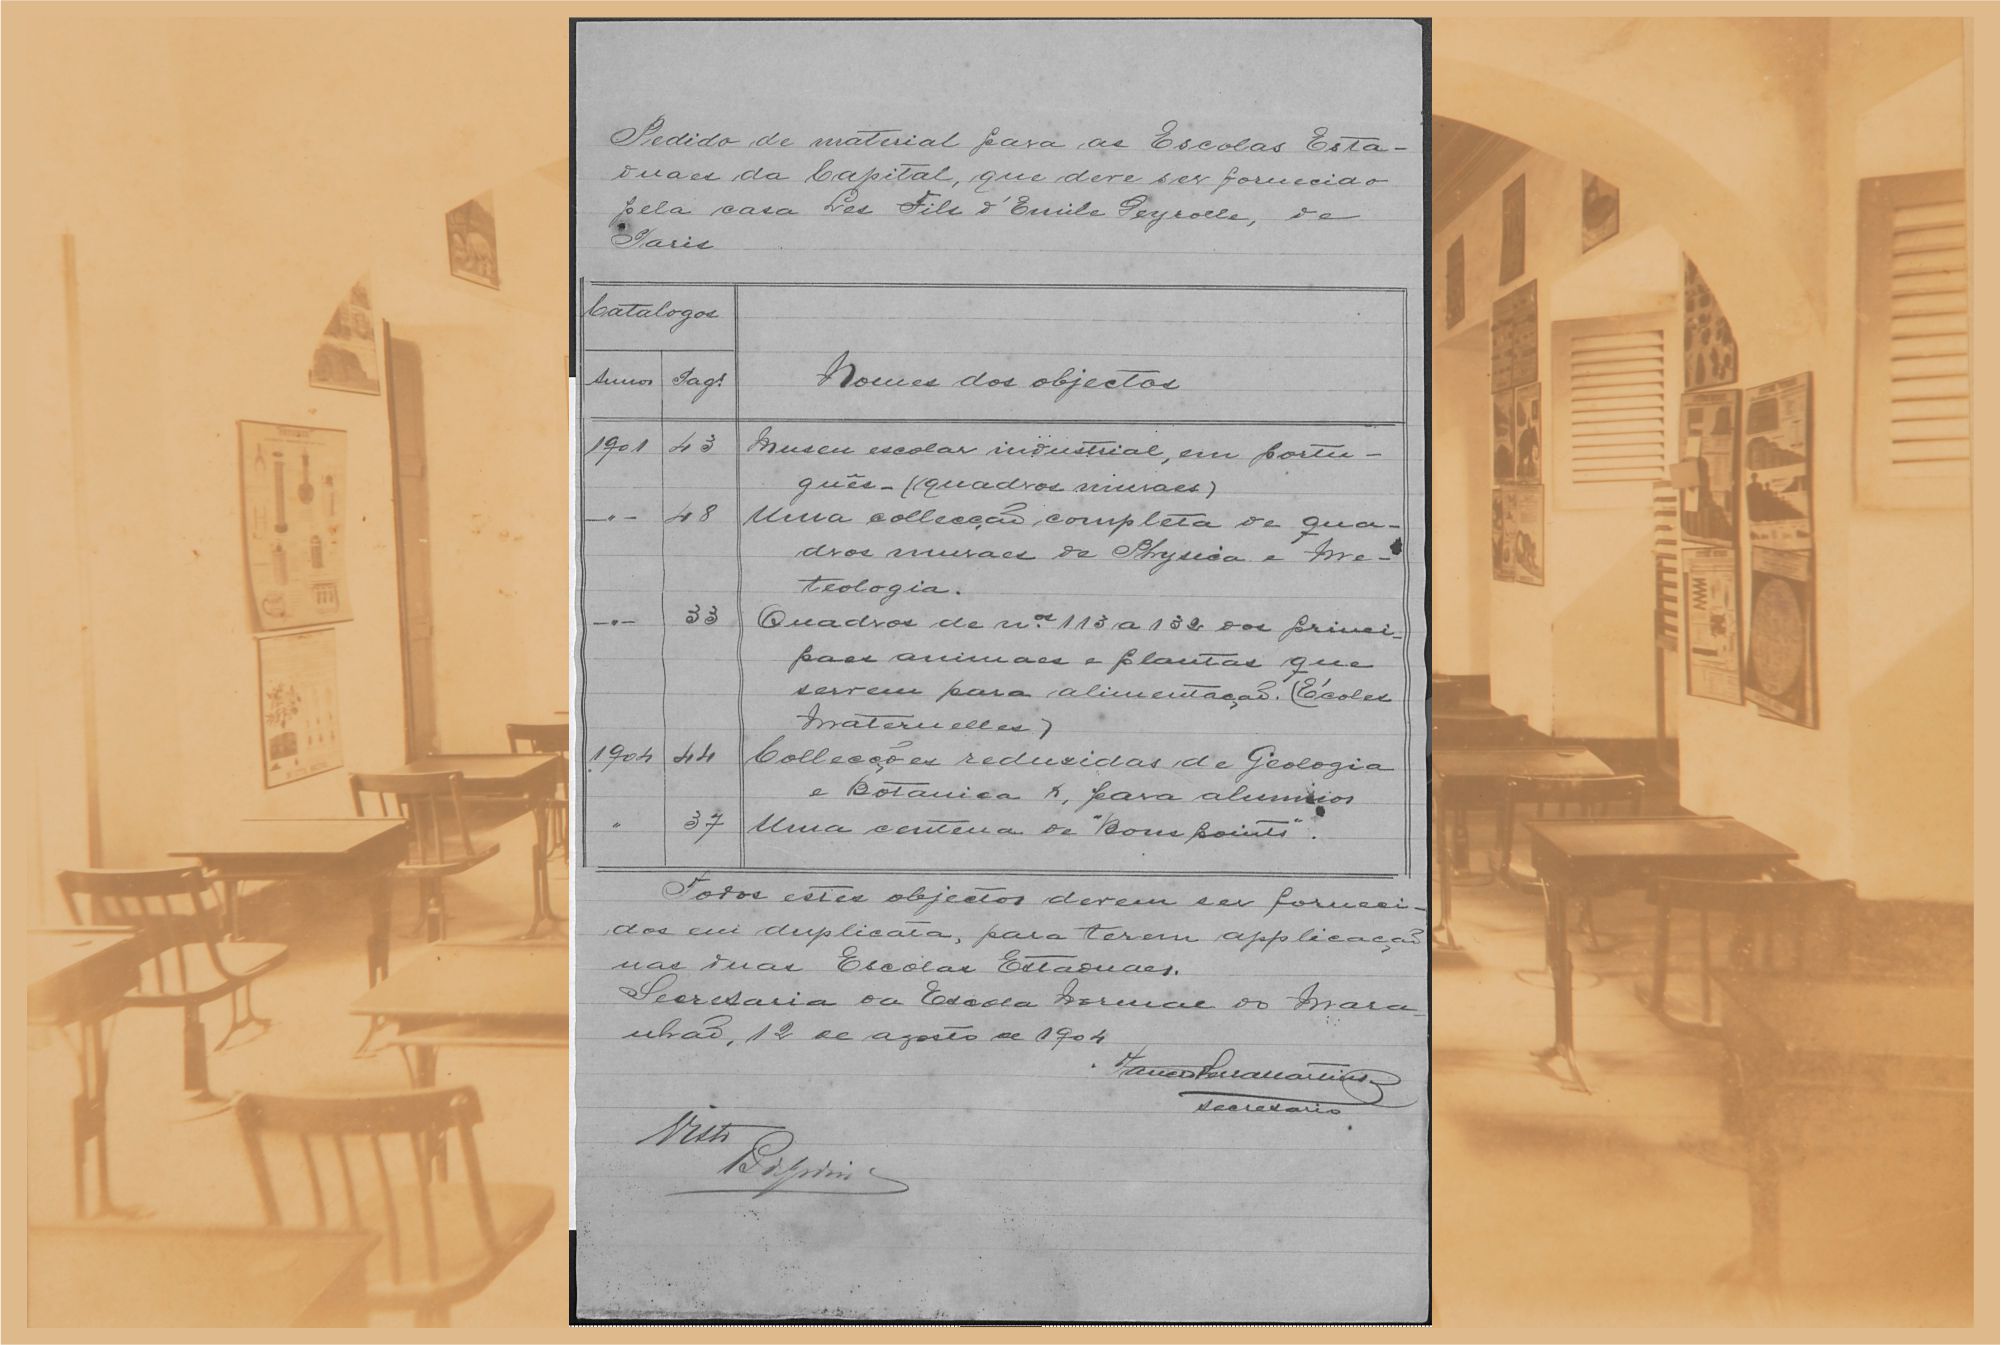 Pedido de material para as Escolas Esta-
duaes da Capital, que deve ser fornecido
pela casa Les Fils d'Emile Deyrolle, de
Paris
Catalogos
Annos Pags
Nomes dos objectos
1901 43 Museu escolar industrial, em portu-
guês - (quadros muraes)
—"— 48 Uma collecção completa de qua-
dros muraes de Physica e Me-
teologia.
—"— 33 Quadros de n.os 113 a 132 dos princi-
paes animaes e plantas que
servem para alimentação. (Écoles
Maternelles)
1904 44 Collecções redusidas de Geologia
e Botanica K, para alumnos
" 37 Uma centena de "Bons points".
Todos estes objectos devem ser forneci-
dos em duplicata, para terem applicação
nas duas Escolas Estaduaes.
Secretaria da Escola Normal do Mara-
nhão, 12 de agosto de 1904
secretario
Visto